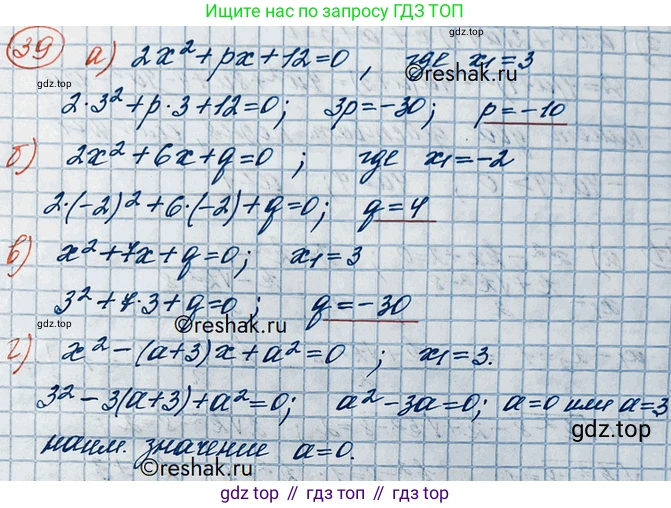 Ищите нас по запросу ГДЗ ТОП
39 а) 2x² + px + 12 = 0, где x₁ = 3
gdz top
©reshak.ru
2·3² + p·3 + 12 = 0; 3p = -30; p = -10
б) 2x² + 6x + q = 0; где x₁ = -2
2·(-2)² + 6·(-2) + q = 0; q = 4
в) x² + 7x + q = 0; x₁ = 3
3² + 7·3 + q = 0; q = -30
gdz top
©reshak.ru
г) x² - (a+3)x + a² = 0; x₁ = 3.
3² - 3(a+3) + a² = 0; a² - 3a = 0; a = 0 или a = 3
наим. значение a = 0.
gdz top
©reshak.ru
gdz top // гдз топ // gdz top // гдз топ // gdz top